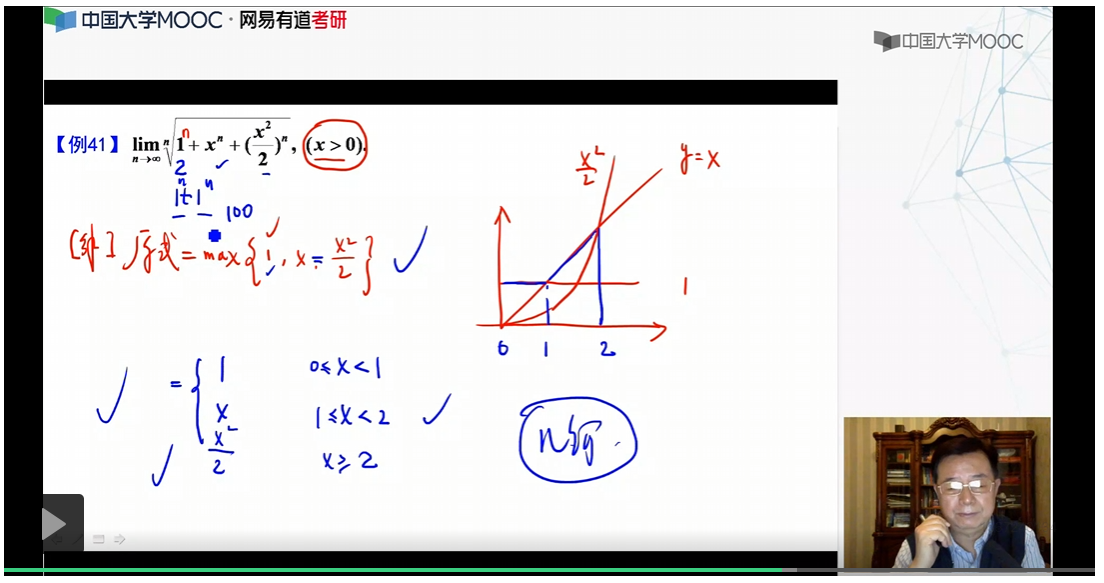 中国大学MOOC · 网易有道考研
中国大学MOOC
【例41】 lim n→∞ ⁿ√(1ⁿ + xⁿ + (x²/2)ⁿ), (x > 0).
2
1ⁿ+1ⁿ
100
[解] 原式 = max{1, x, x²/2}
= { 1 0≤x<1
x 1≤x<2
x²/2 x≥2
x²/2
y=x
1
0 1 2